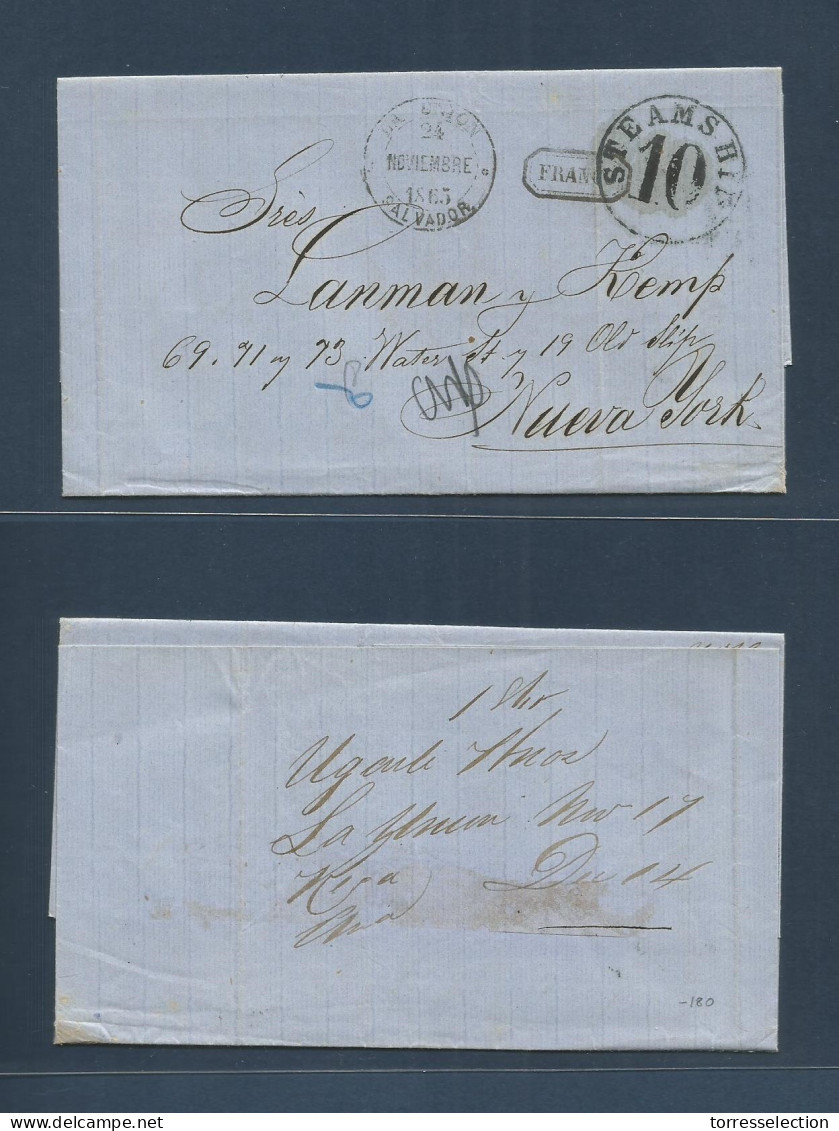 LA UNION
24
NOVIEMBRE
1865
SALVADOR
FRANCO
STEAMSHIP
10
Srès
Lanman y Kemp
69. 71 y 73 Water St y 19 Old Slip
Nueva York
8
La Union Nov 17
Dec 14
-180
delcampe.net
torresselection